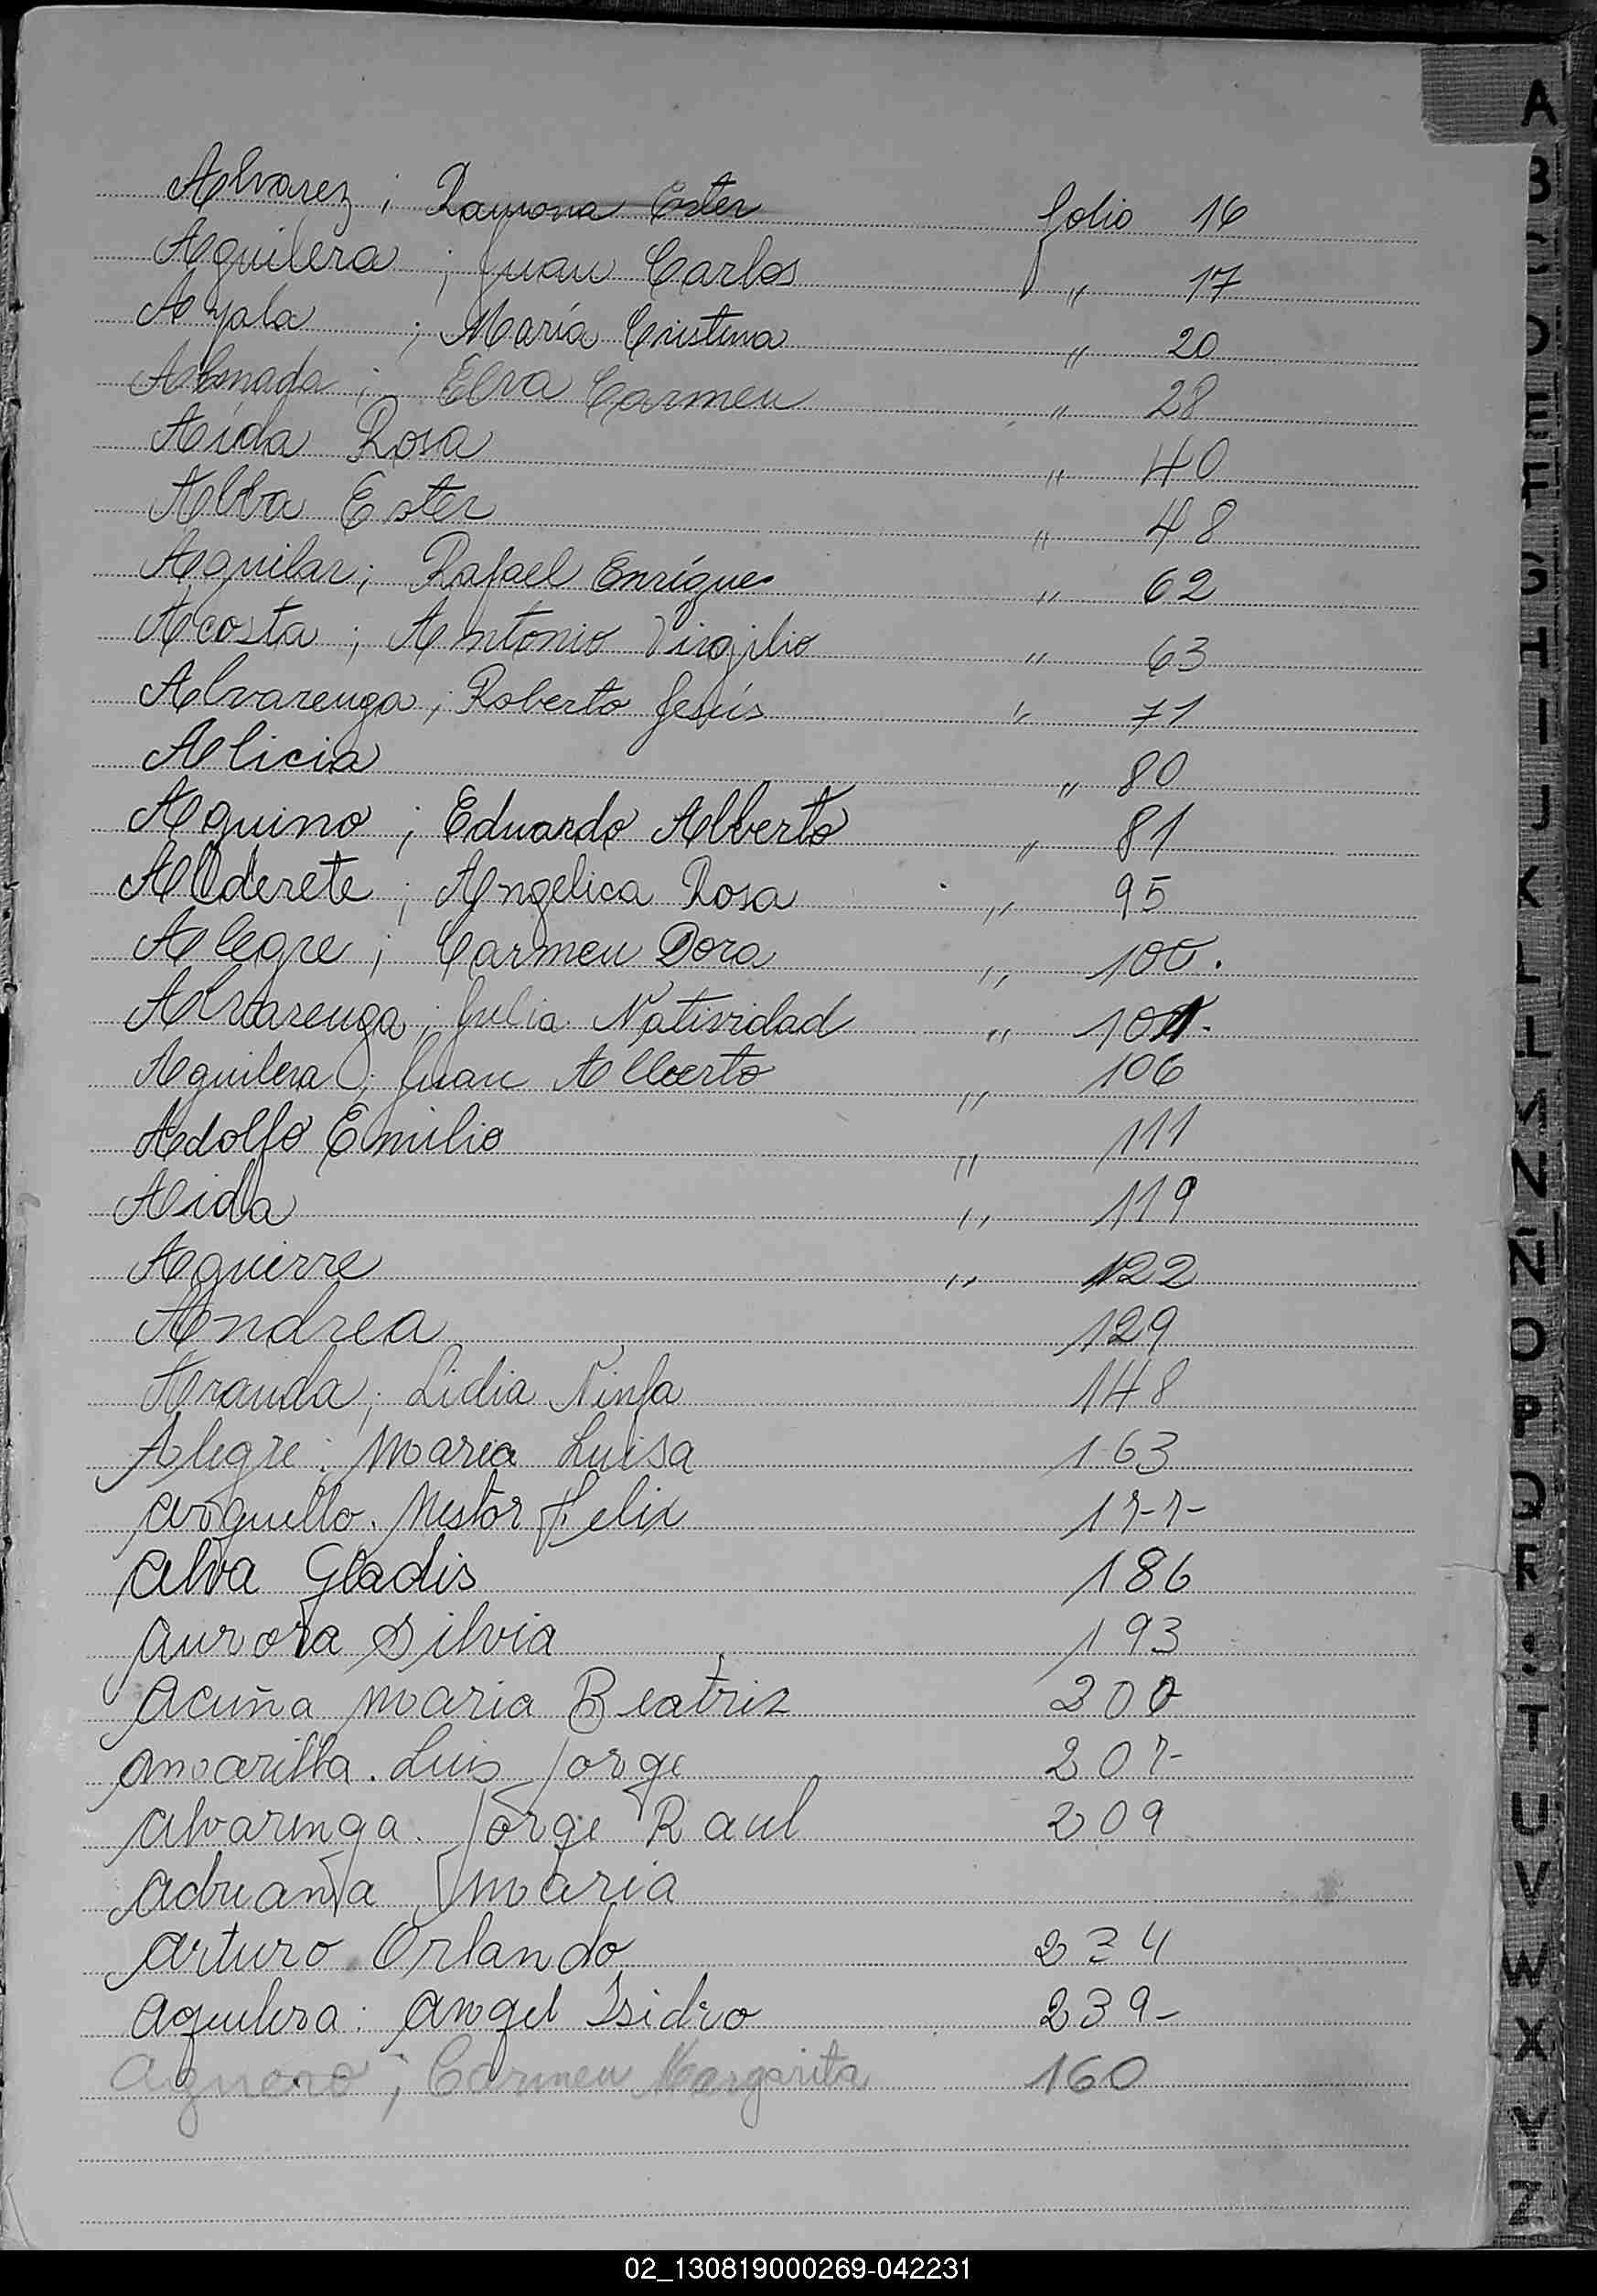 Alvarez ; Ramona Ester folio 16
Aguilera ; Juan Carlos " 17
Ayala ; María Cristina " 20
Elva Carmen " 28
Aída Rosa " 40
Alba Ester " 48
Aguilar ; Rafael Enríque " 62
Acosta ; Antonio Virgilio " 63
Alvarenga ; Roberto Jesús " 71
Alicia " 80
Aquino ; Eduardo Alberto " 81
Alderete ; Angelica Rosa " 95
Alegre ; Carmen Dora " 100.
Alvarenga ; Julia Natividad " 101.
Aguilera ; Juan Alberto " 106
Adolfo Emilio " 111
Aida " 119
Aguirre " 122
Andrea 129
Aranda ; Lidia Ninfa 148
Alegre : Maria Luisa 163
Arguello. Nestor Felix 177-
Alva Gladis 186
Aurora Silvia 193
Acuña Maria Beatriz 200
Amarilla. Luis Jorge 207-
Alvarenga. Jorge Raul 209
Adriana Maria
Arturo Orlando 234
Aguilera : Angel Isidro 239-
Aguero ; Carmen Margarita 160
A
B
C
D
E
F
G
H
I
J
K
L
LL
M
N
Ñ
O
P
Q
R
S
T
U
V
W
X
Y
Z
02_130819000269-042231